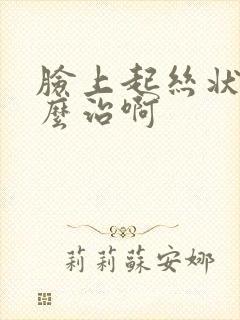 臉上起絲狀
麼治啊
莉莉蘇安娜